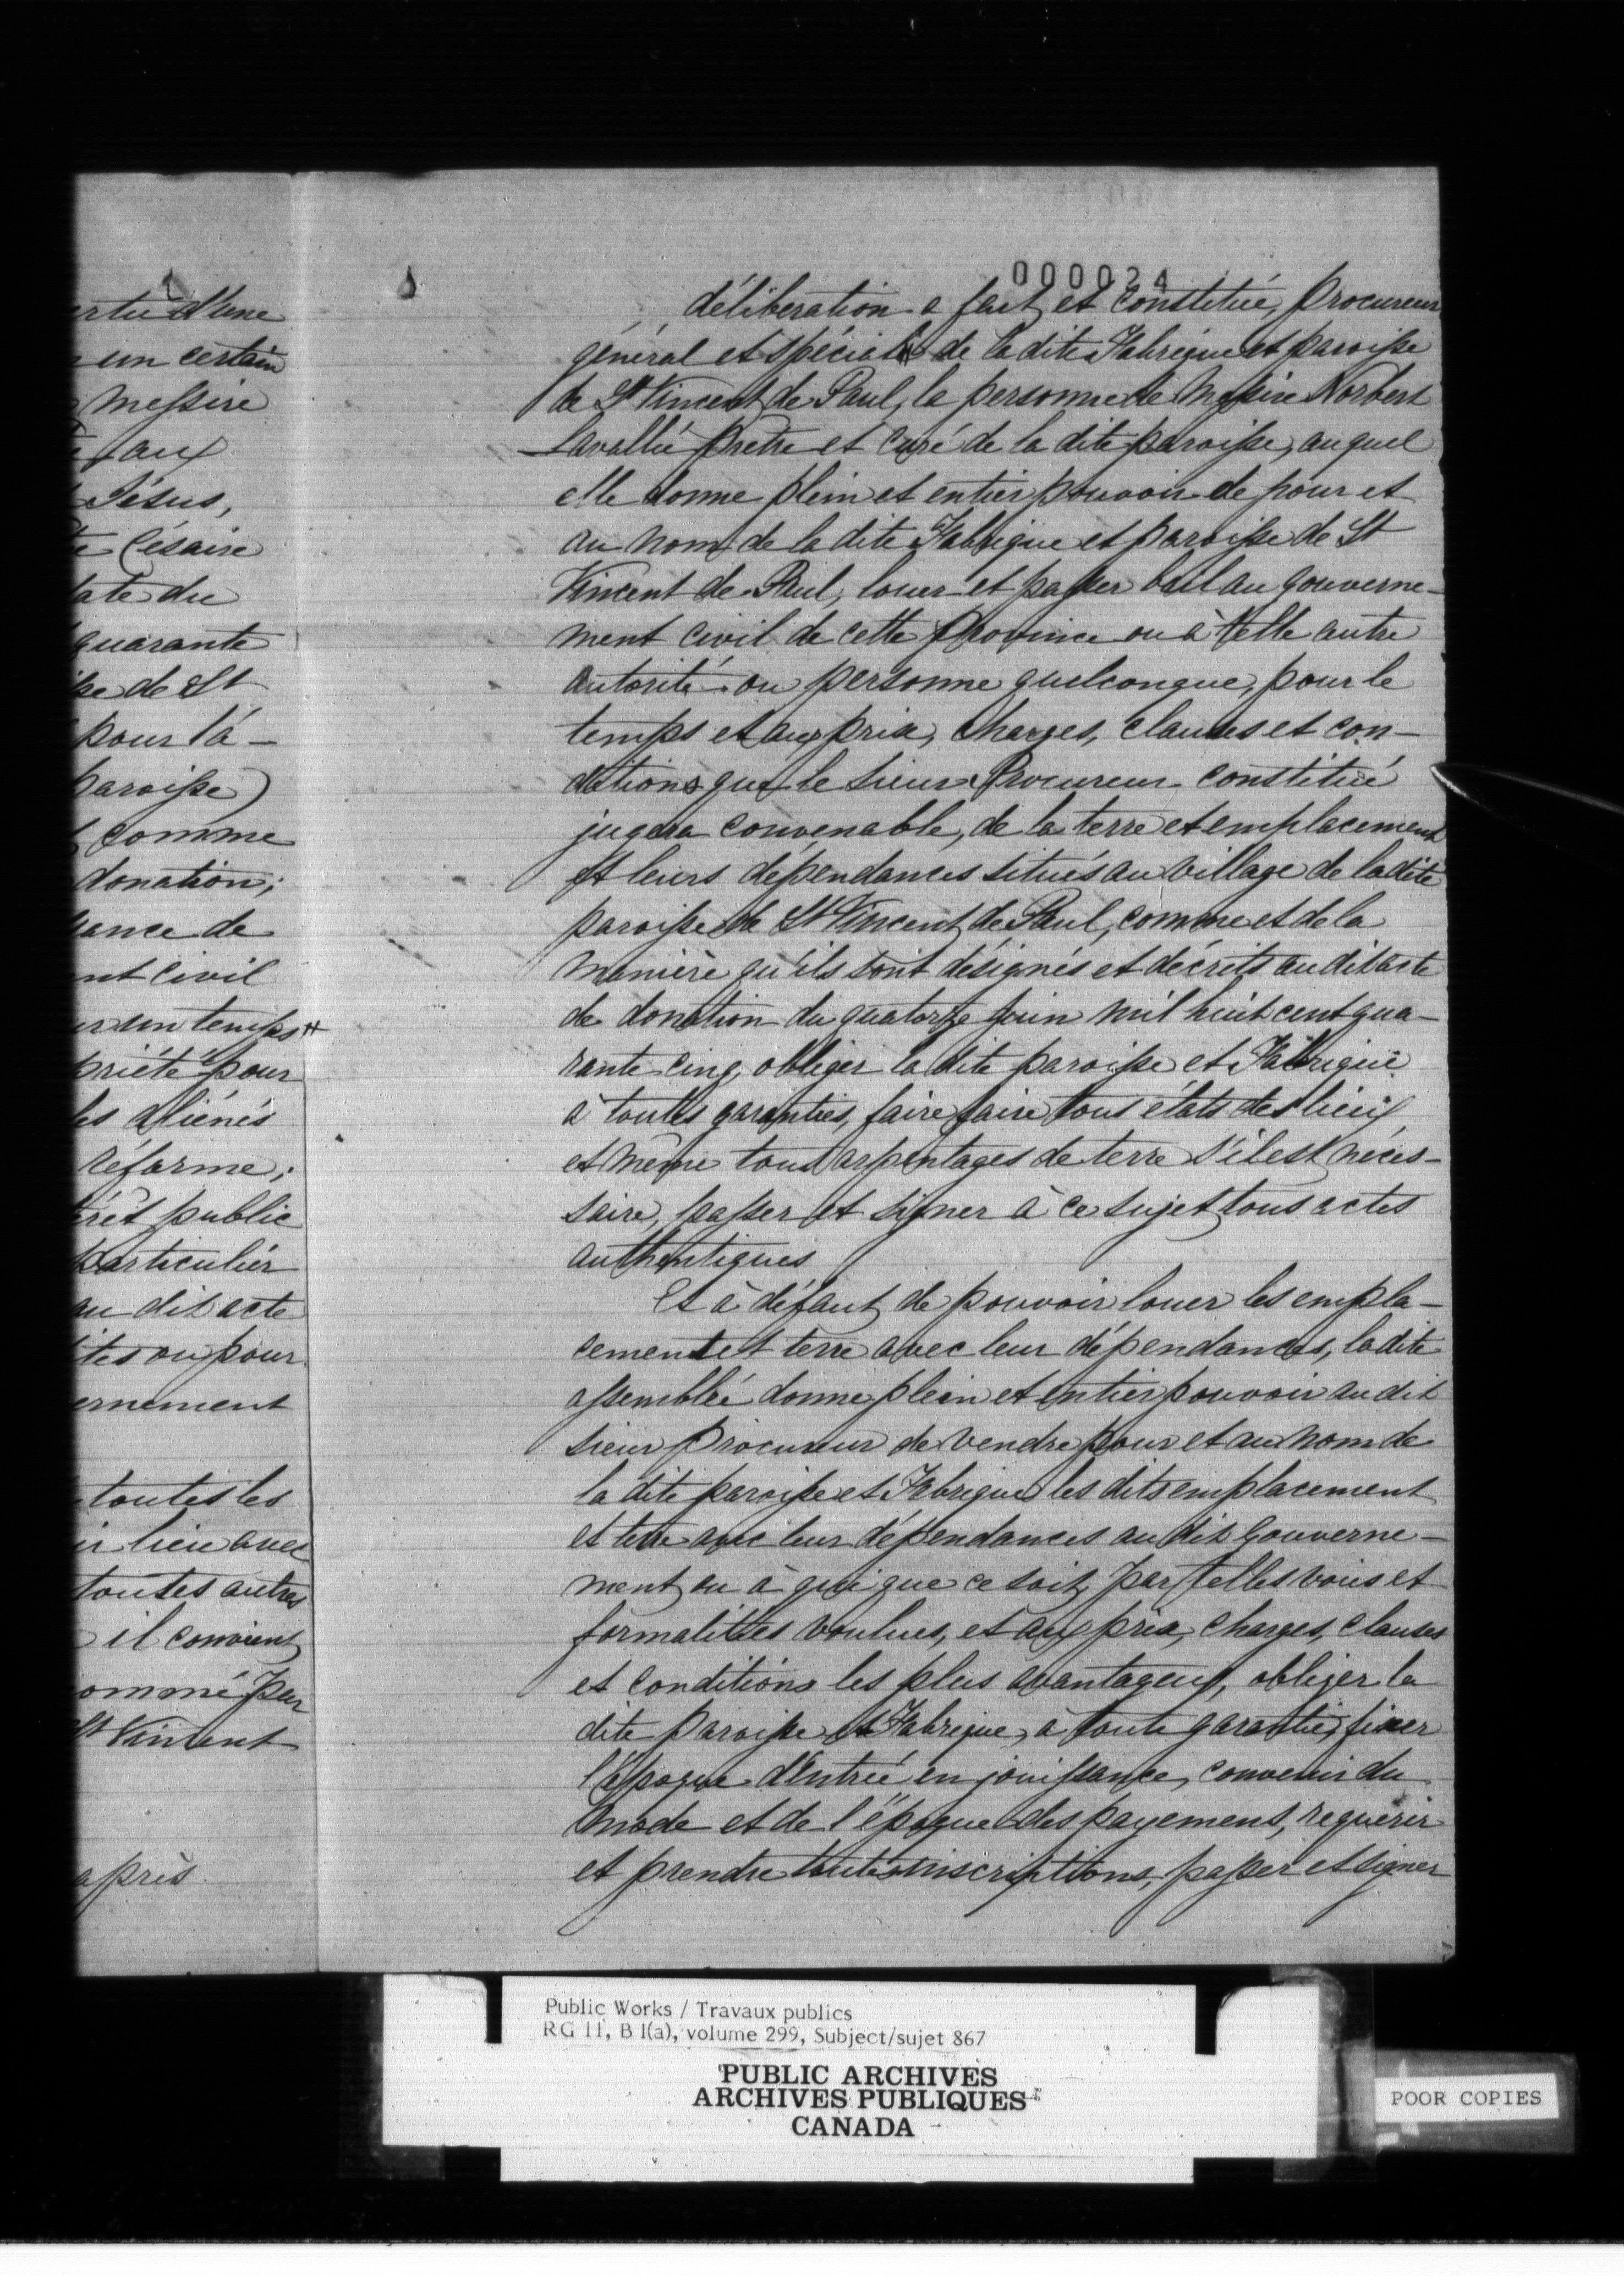 000024
rtu d'une
un certain
Messire
aux
Jésus,
te Césaire
date du
quarante
de St
pour la
paroisse)
comme
donation;
ance de
nt civil
un temps
priété pour
les aliénés
réforme;
érêt public
particulier
au dit acte
tes ou pour
ernement
toutes les
lieu avec
toutes autres
il convient
ommé par
St Vincent
après.
délibération a fait et constitué, procureur
général et spécial de la dite Fabrique et paroisse
de St Vincent de Paul, la personne de Messire Norbert
Lavallée prêtre et curé de la dite paroisse, auquel
elle donne plein et entier pouvoir de pour et
au nom de la dite Fabrique et paroisse de St
Vincent de Paul, louer et passer bail au gouverne-
ment civil de cette Province ou à telle autre
autorité ou personne quelconque, pour le
temps et aux prix, charges, clauses et con-
ditions que le sieur Procureur constitué
jugera convenable, de la terre et emplacement
et leurs dépendances situés au village de la dite
paroisse de St Vincent de Paul, comme et de la
manière qu'ils sont désignés et décrits au dit acte
de donation du quatorze juin mil huit cent qua-
rante cinq, obliger la dite paroisse et Fabrique
à toutes garanties, faire faire tous états des lieux
et même tous arpentages de terre s'il est néces-
saire, passer et signer à ce sujet tous actes
authentiques
Et à défaut de pouvoir louer les empla-
cements et terre avec leur dépendances, la dite
assemblée donne plein et entier pouvoir au dit
sieur Procureur de vendre pour et au nom de
la dite paroisse et Fabrique les dits emplacement
et terre avec leur dépendances au dit Gouverne-
ment ou à qui que ce soit, par telles voies et
formalités voulues, et aux prix, charges, clauses
et conditions les plus avantageux, obliger la
dite paroisse et Fabrique, à toute garantie, fixer
l'époque d'entrée en jouissance, convenir du
mode et de l'époque des payemens, requérir
et prendre toutes inscriptions, passer et signer
Public Works / Travaux publics
RG 11, B 1(a), volume 299, Subject/sujet 867
PUBLIC ARCHIVES
ARCHIVES PUBLIQUES
CANADA
POOR COPIES